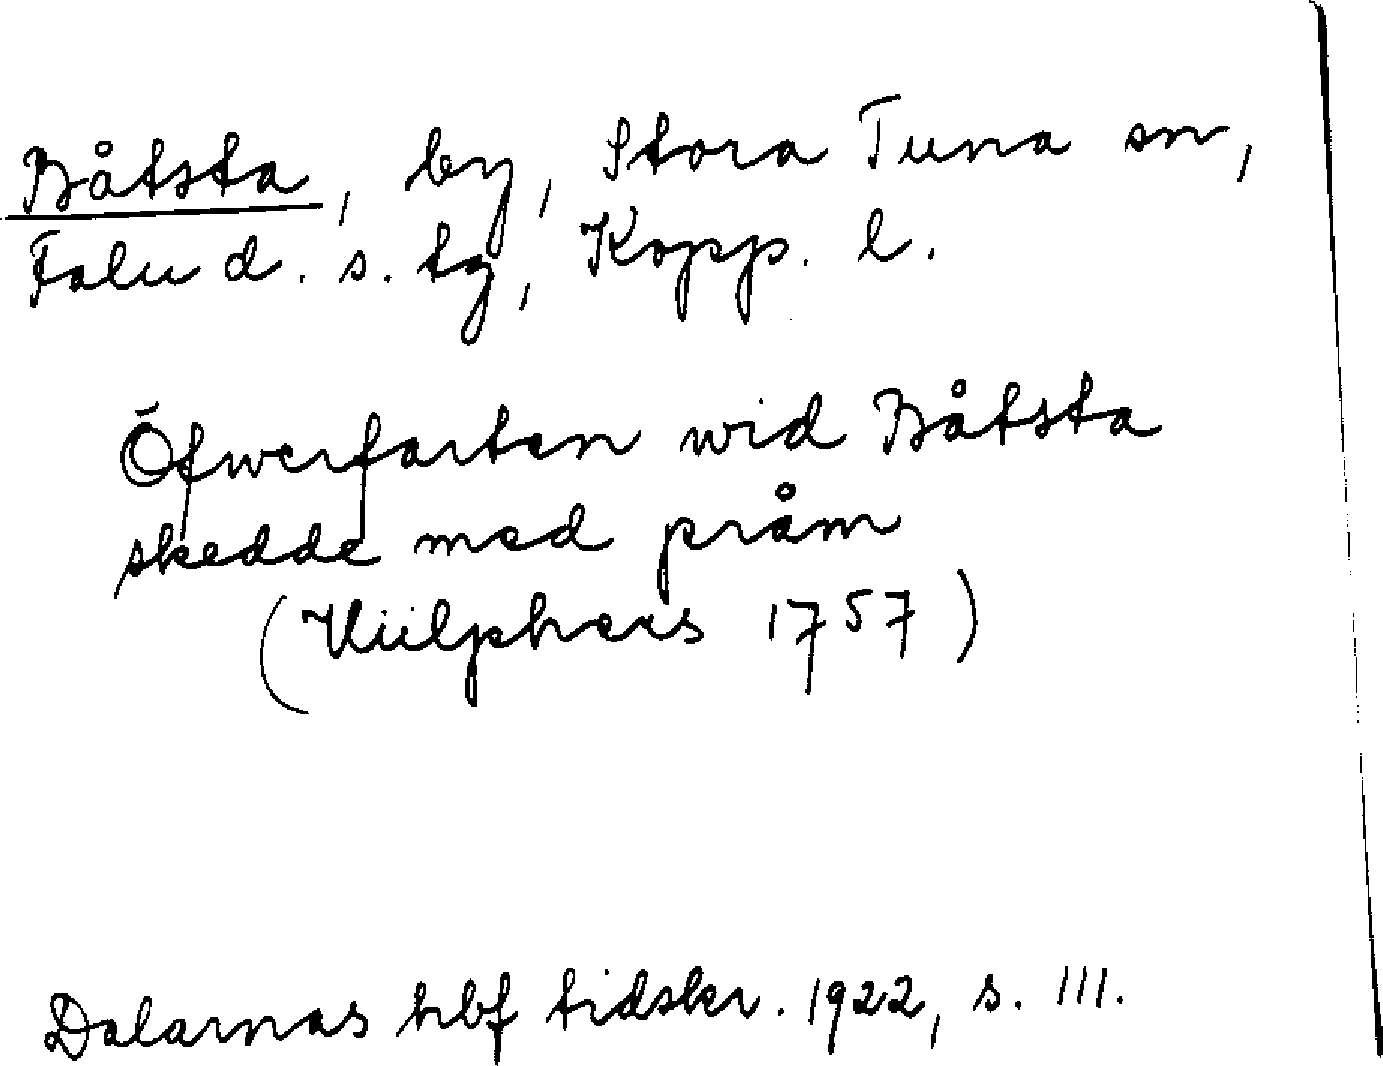 Båtsta, by, Stora Tuna sn,
Falu d. s. tg, Kopp. l.
Öfwerfarten wid Båtsta
skedde med pråm
(Hülphers 1757)
Dalarnas hbf tidskr. 1922, s. 111.